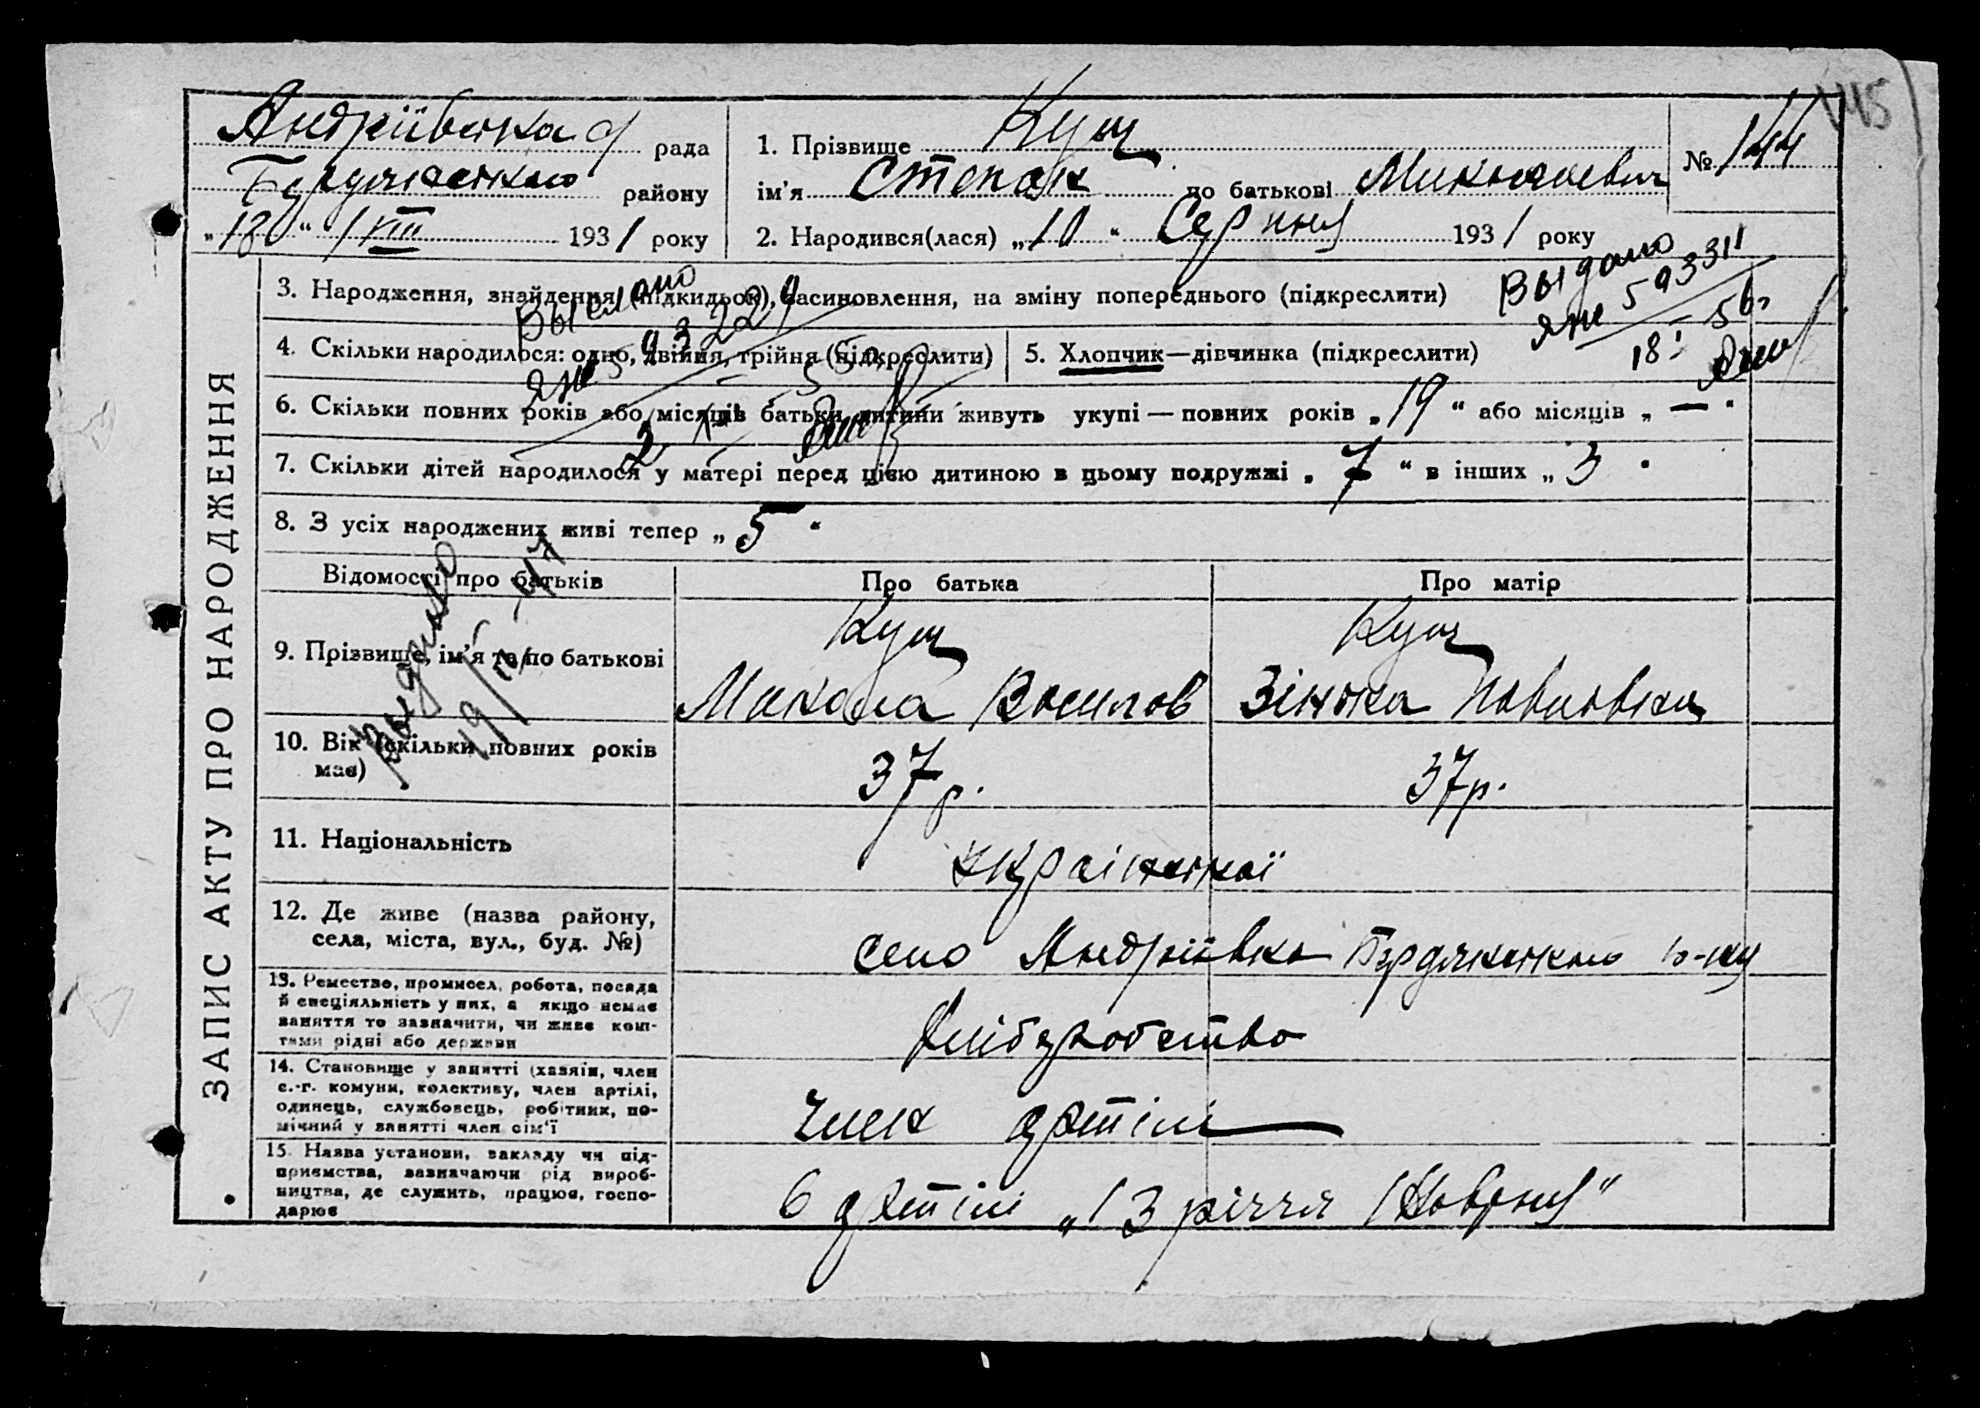 145
Андріївська с/ рада
Бердянського району
"13" VIII 1931 року
1. Прізвище Кущ
ім'я Степан по батькові Миколаевич
№ 144
2. Народився(лася) "10" Серпня 1931 року
ЗАПИС АКТУ ПРО НАРОДЖЕННЯ
3. Народження, знайдення (підкидьок), засиновлення, на зміну попереднього (підкреслити)
Выслано
ЯЖ 593229
Выдано
ЯЖ 593311
18 56
4. Скільки народилося: одно, двійня, трійня (підкреслити)
5. Хлопчик—дівчинка (підкреслити)
6. Скільки повних років або місяців батьки дитини живуть укупі — повних років „19“ або місяців „—“
7. Скільки дітей народилося у матері перед цією дитиною в цьому подружжі „7“ в інших „3"
8. З усіх народжених живі тепер „5“
Выдано
19/ 47
Відомості про батьків
Про батька
Про матір
9. Прізвище, ім'я та по батькові
Кущ
Микола Василов
Кущ
Зінька Павловна
10. Вік (скільки повних років
має)
37 р.
37 р.
11. Національність
української
12. Де живе (назва району,
села, міста, вул., буд. №)
село Андріївка Бердянського р-ну
13. Ремество, промисел, робота, посада
й спеціяльність у них, а якщо немає
заняття то зазначити, чи живе кош-
тами рідні або держави
хліборобство
14. Становище у занятті (хазяїн, член
с.-г. комуни, колективу, член артілі,
одинець, службовець, робітник, по-
мічний у занятті член сім'ї
член артілі
15. Назва установи, закладу чи під-
приємства, зазначаючи рід вироб-
ництва, де служить, працює, госпо-
дарює
в артілі „13 річчя Жовтня“